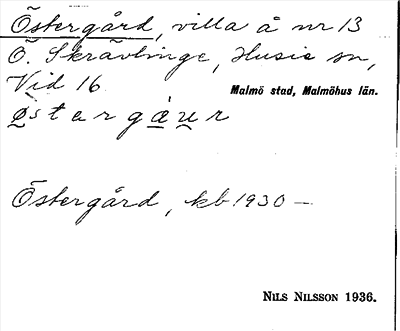 Östergård, villa å nr 13
Ö. Skrävlinge, Husie sn,
Vid 16
Malmö stad, Malmöhus län.
Östergård, kb 1930 —
NILS NILSSON 1936.